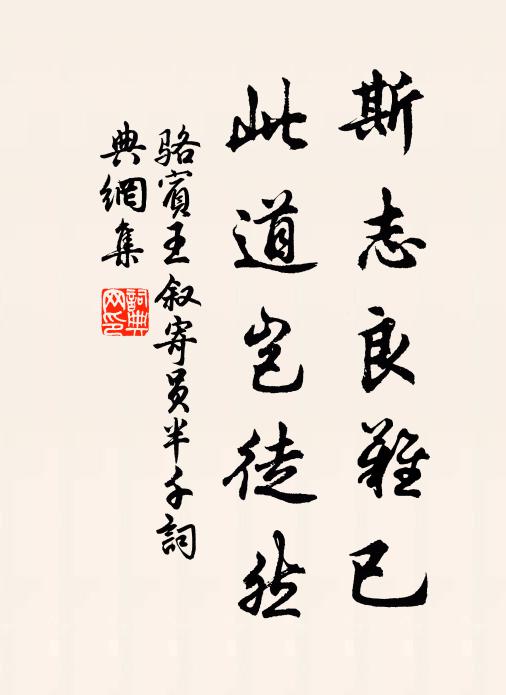 斯志良難已
此道岂徒然
骆賓王叙寄员半千詞
典網集
詞典
网印